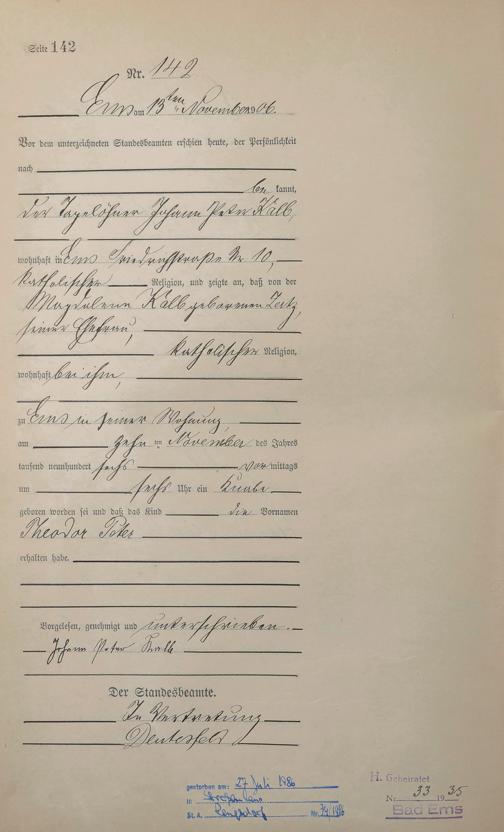 Seite 142
Nr. 142
Ems am 13ten November 1906.
Vor dem unterzeichneten Standesbeamten erschien heute, der Persönlichkeit
nach
be kannt,
der Tagelöhner Johann Peter Kalb,
wohnhaft in Ems Friedrichstraße Nr 10,
katholischer Religion, und zeigte an, daß von der
Magdalena Kalb geborenen
seiner Ehefrau,
katholischer Religion,
wohnhaft bei ihm,
zu Ems in seiner Wohnung,
am zehn ten November des Jahres
tausend neunhundert sechs vor mittags
um sechs Uhr ein Knabe
geboren worden sei und daß das Kind die Vornamen
Theodor Peter
erhalten habe.
Vorgelesen, genehmigt und unterschrieben.
Johann Peter Kalb
Der Standesbeamte.
In Vertretung
gestorben am: 27 Juli 1986
in
St. A. Nr.
H. Geheiratet
Nr. 33 1935
Bad Ems